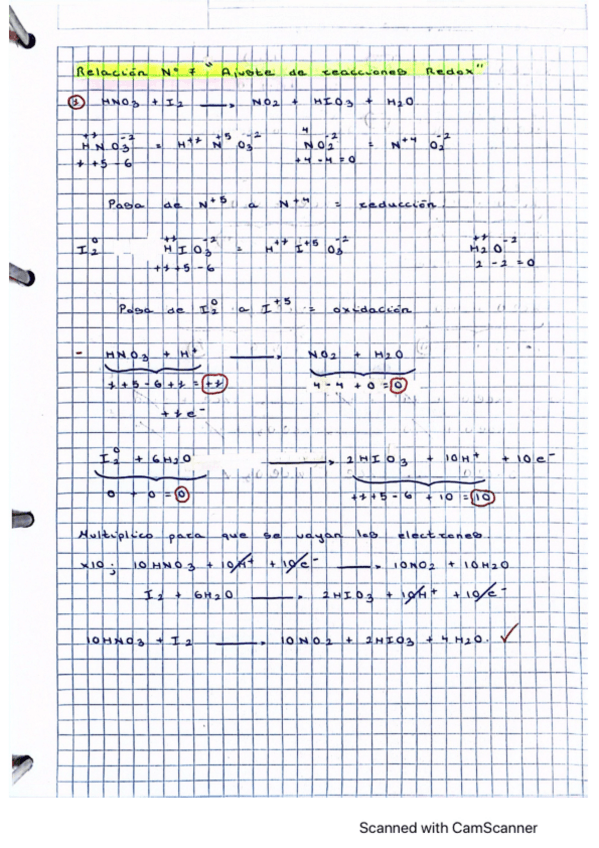 Relación Nº 7 "Ajuste de reacciones Redox"
① HNO3 + I2 → NO2 + HIO3 + H2O
+1 -2 +5 4 -2 -2
HNO3 = H+1 N O3-2 NO2 = N+4 O2-2
1 +5 -6 +4 -4 = 0
Pasa de N+5 a N+4 = reducción.
I2 0 +1 HIO3 -2 = H+1 I+5 O3-2 +1 H2O -2
+1 +5 -6 2 -2 = 0
Pasa de I2 0 a I+5 = oxidación
- HNO3 + H+ → NO2 + H2O
1 +5 -6 +1 = +1 4 -4 +0 = 0
+1e-
I2 0 + 6H2O → 2HIO3 + 10H+ + 10e-
0 + 0 = 0 +1+5-6 + 10 = 10
Multiplico para que se vayan los electrones.
x10; 10HNO3 + 10H+ + 10e- → 10NO2 + 10H2O
I2 + 6H2O → 2HIO3 + 10H+ + 10e-
10HNO3 + I2 → 10NO2 + 2HIO3 + 4H2O. ✓
Scanned with CamScanner